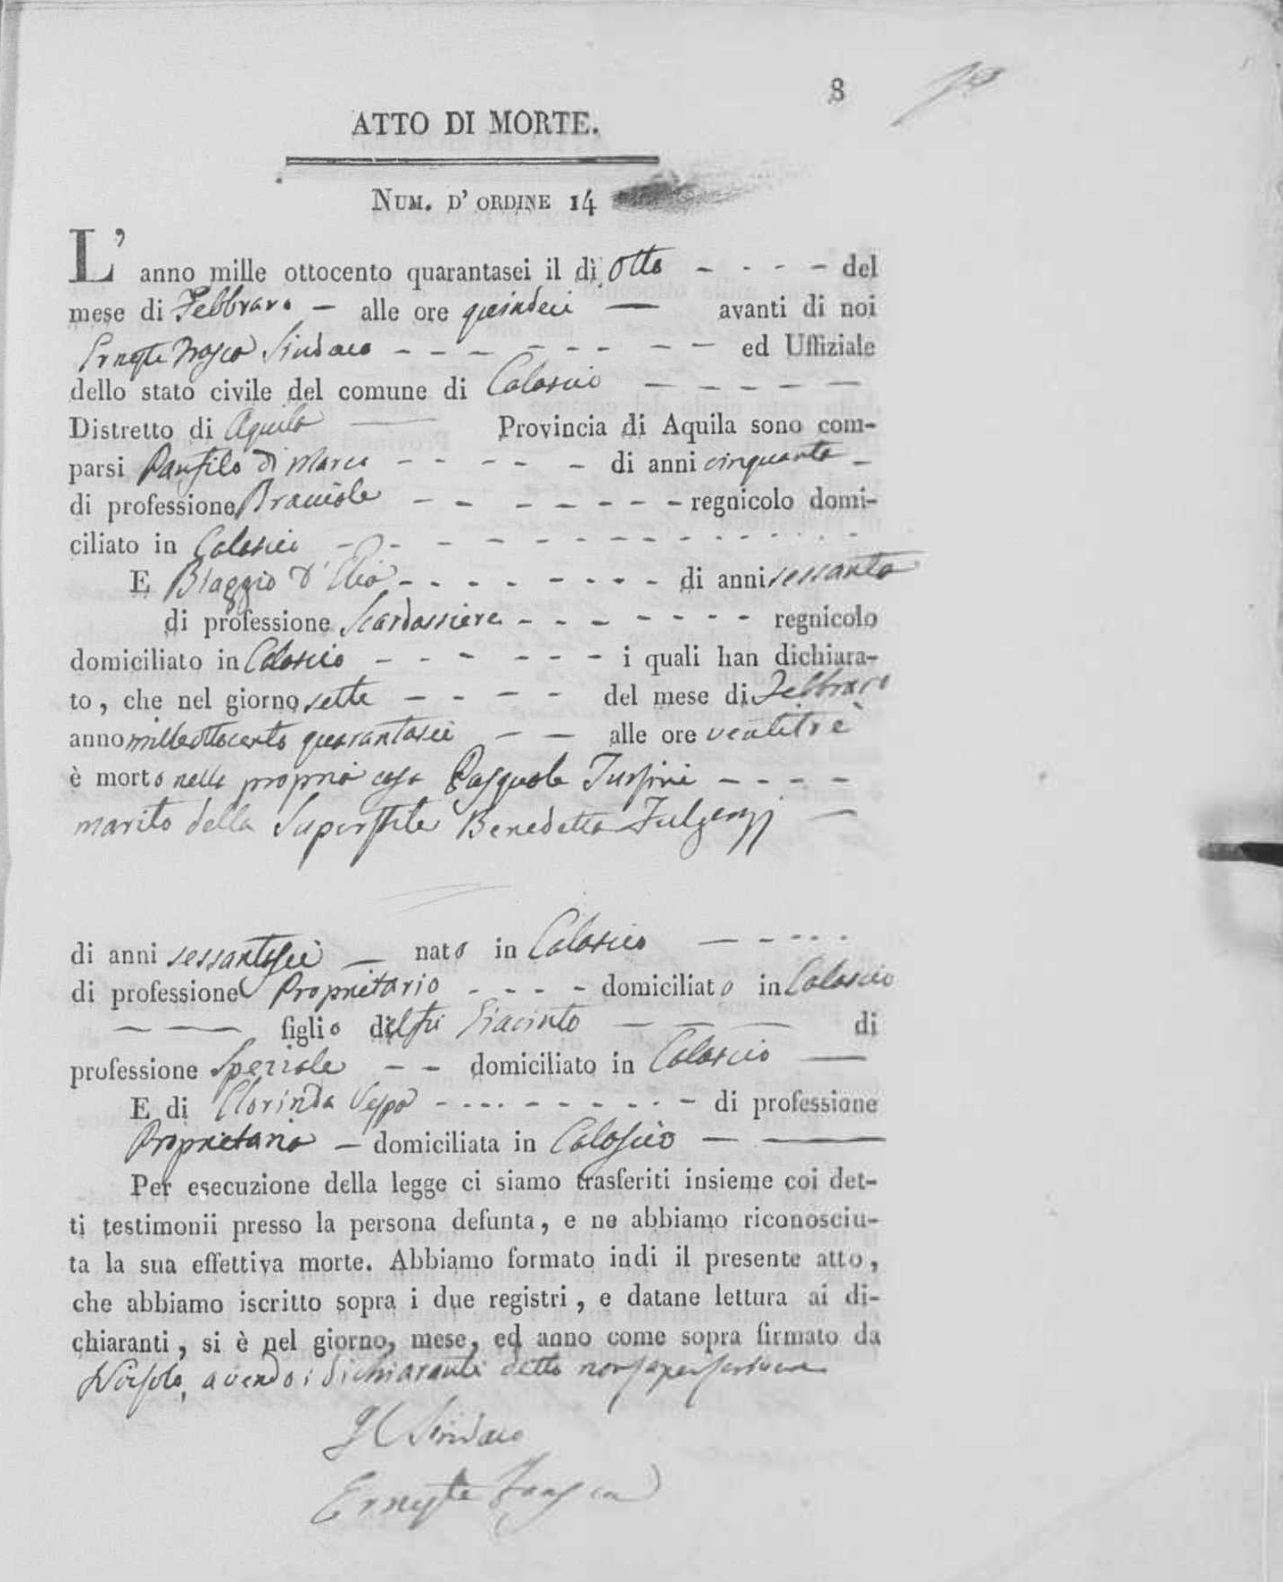 8
ATTO DI MORTE.
NUM. D' ORDINE 14
L' anno mille ottocento quarantasei il dì Otto - - - - del
mese di Febbraro - alle ore quindeci — avanti di noi
Erneste Sindaco - - - - - - - - ed Uffiziale
dello stato civile del comune di Calascio - - - - - -
Distretto di Aquila — Provincia di Aquila sono com-
parsi Panfilo di Marco - - - - - di anni cinquanta -
di professione Bracciale - - - - - - - - regnicolo domi-
ciliato in Calascio - - - - - - - - - - - - - -
E Biaggio D'Elia - - - - - - - - di anni sessanta
di professione Scardassiere - - - - - - - - regnicolo
domiciliato in Calascio - - - - - - - i quali han dichiara-
to, che nel giorno sette - - - - del mese di Febbraro
anno milleottocento quarantasei - - alle ore ventitrè
è morto nella propria casa Pasquale - - - -
marito della Superstite Benedetta Fulgenzj —
di anni sessantasei — nato in Calascio — - - - -
di professione Proprietario - - - - domiciliato in Calascio
— — figlio del fu Giacinto — — — di
professione Speziale - - domiciliato in Calascio —
E di Clorinda - - - - - - - - - - di professione
Proprietaria - domiciliata in Calascio — —
Per esecuzione della legge ci siamo trasferiti insieme coi det-
ti testimonii presso la persona defunta, e ne abbiamo riconosciu-
ta la sua effettiva morte. Abbiamo formato indi il presente atto,
che abbiamo iscritto sopra i due registri, e datane lettura ai di-
chiaranti, si è nel giorno, mese, ed anno come sopra firmato da
Noi solo, avendo i dichiaranti detto non saper scrivere
Il Sindaco
Erneste